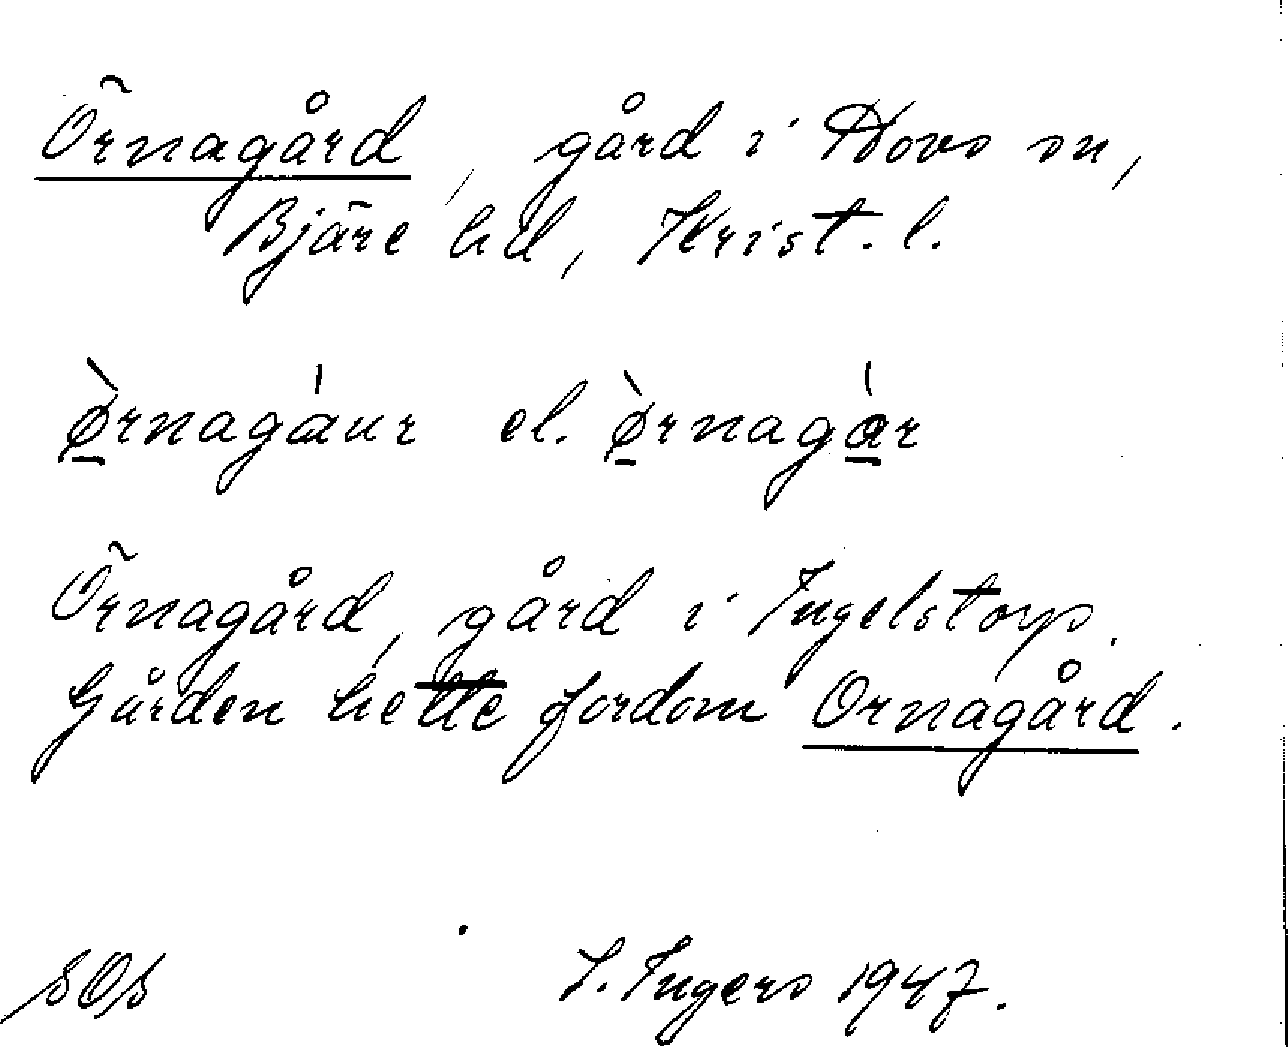 Örnagård, gård i Hovs sn,
Bjäre hd, Krist. l.
ø̱̀rnagáur el. ø̱̀rnagá̱r
Örnagård, gård i Ingelstorp.
Gården hette fordom Ornagård.
SOS I. Ingers 1947.